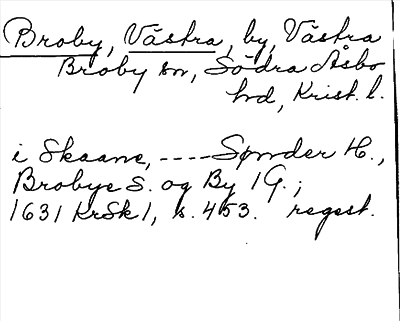 Broby, Västra, by, Västra
Broby sn, Södra Åsbo
hd, Krist. l.
i Skaane, ---- Sønder H.,
Brobye S. og By 1 G.;
1631 KrSk 1, s. 453. regest.